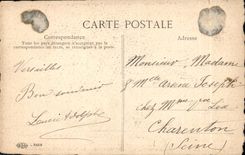 CARTE POSTALE
Correspondance
Tous les pays étrangers n'acceptent pas la
correspondance au recto, se renseigner à la poste.
Adresse
Versailles
Bon souvenir
Louis Adolphe
Monsieur, Madame
& Mlle Joseph
chez Mme Vve
Charenton
(Seine)
ELD